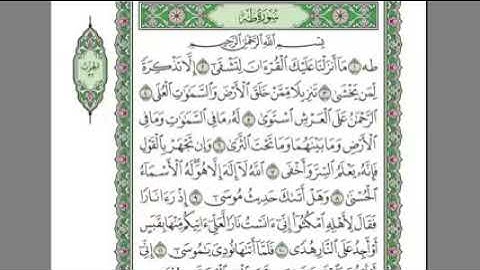 سورة طه
بسم الله الرحمن الرحيم
طه ١ ما أنزلنا عليك القرءان لتشقى ٢ إلا تذكرة
لمن يخشى ٣ تنزيلا ممن خلق الأرض والسموات العلى ٤
الرحمن على العرش استوى ٥ له ما في السموت وما في
الأرض وما بينهما وما تحت الثرى ٦ وإن تجهر بالقول
فإنه يعلم السر وأخفى ٧ الله لا إله إلا هو له الأسماء
الحسنى ٨ وهل أتىك حديث موسى ٩ إذ رءا نارا
فقال لأهله امكثوا إني ءانست نارا لعلي ءاتيكم منها بقبس
أو أجد على النار هدى ١٠ فلما أتىها نودي يموسى ١١ إني